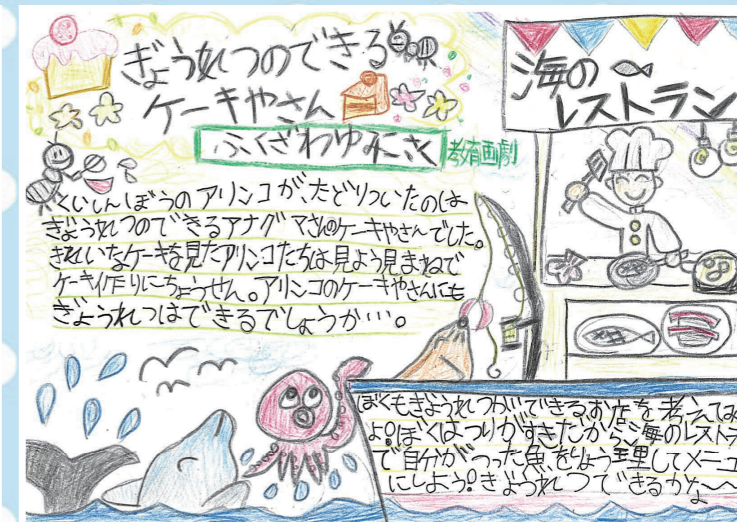 ぎょうれつのできる
ケーキやさん
ふくざわゆみこさく
教育画劇
くいしんぼうのアリンコが、たどりついたのは
ぎょうれつのできるアナグマさんのケーキやさんでした。
きれいなケーキを見たアリンコたちは見よう見まねで
ケーキ作りにちょうせん。アリンコのケーキやさんにも
ぎょうれつはできるでしょうか…。
海の
レストラン
ぼくもぎょうれつができるお店を考えてみ
よ!ぼくはつりがすきだから海のレストラ
で自分がつった魚をりょう理してメニュ
にしよう!ぎょうれつできるかな〜